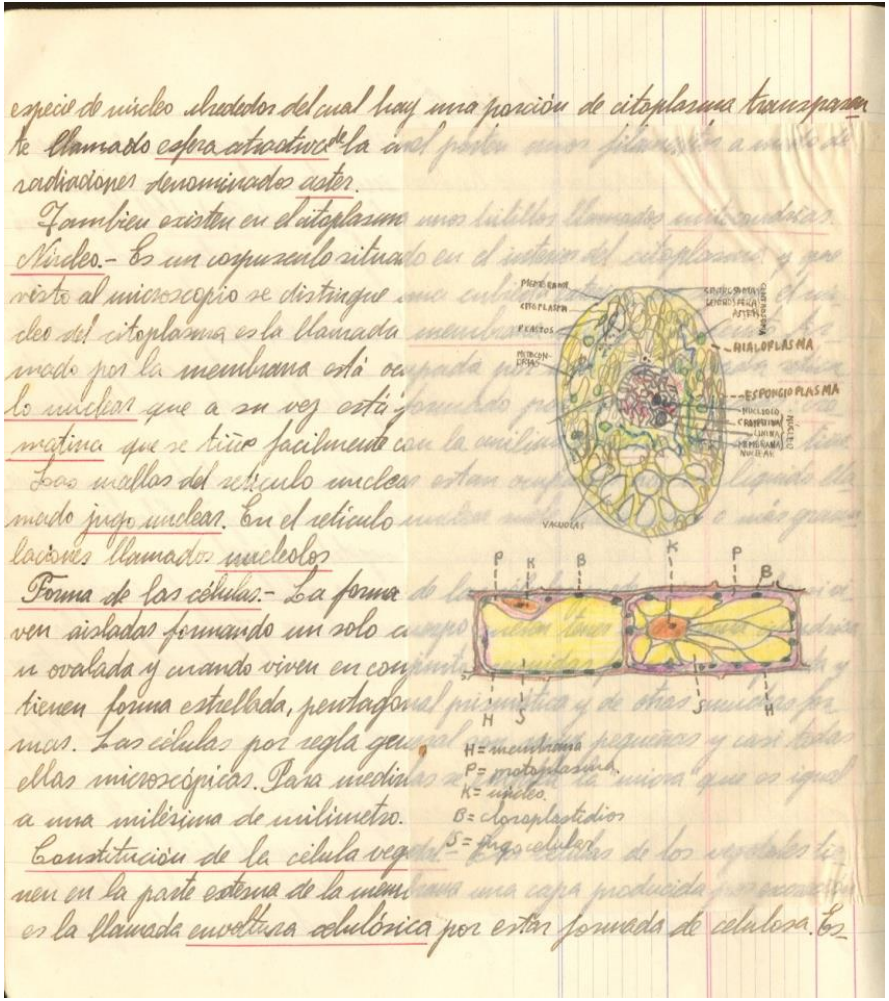 especie de núcleo alrededor del cual hay una porción de citoplasma transparen
te llamado esfera atractiva de la cual parten unos filamentos a modo de
radiaciones denominados aster.
Tambien existen en el citoplasma unos hilillos llamados mitocondrias.
Núcleo.- Es un corpusculo situado en el interior del citoplasma y que
visto al microscopio se distingue una cubierta
cleo del citoplasma es la llamada membrana
mado por la membrana está ocupada
lo nuclear que a su vez está formado por
matina que se tiñe facilmente con la anilina
Las mallas del reticulo nuclear estan ocupadas líquido lla
mado jugo nuclear. En el retículo nuclear o más granu
laciones llamados nucleolos
Forma de las células.- La forma de las
ven aisladas formando un solo cuerpo
u ovalada y cuando viven en conjunto y
tienen forma estrellada, pentagonal prismática y de otras muchas for
mas. Las células por regla general son muy pequeñas y casi todas
ellas microscópicas. Para medirlas se la micra que es igual
a una milésima de milimetro.
Constitución de la célula vegetal.- Las células de los vegetales tie
nen en la parte externa de la membrana una capa producida por excreción
es la llamada envoltura celulósica por estar formada de celulosa. Es-
MEMBRANA
CITOPLASMA
MITOCON-
DRIAS
VACUOLAS
CENTROSOMA
ASTER
HIALOPLASMA
ESPONGIOPLASMA
NUCLEOLO
CROMATINA
MEMBRANA
NUCLEAR
NUCLEO
P K B K P B
H S S H
H= membrana
P= protoplasma
K= núcleo.
B= cloroplastidios
S= jugo celular